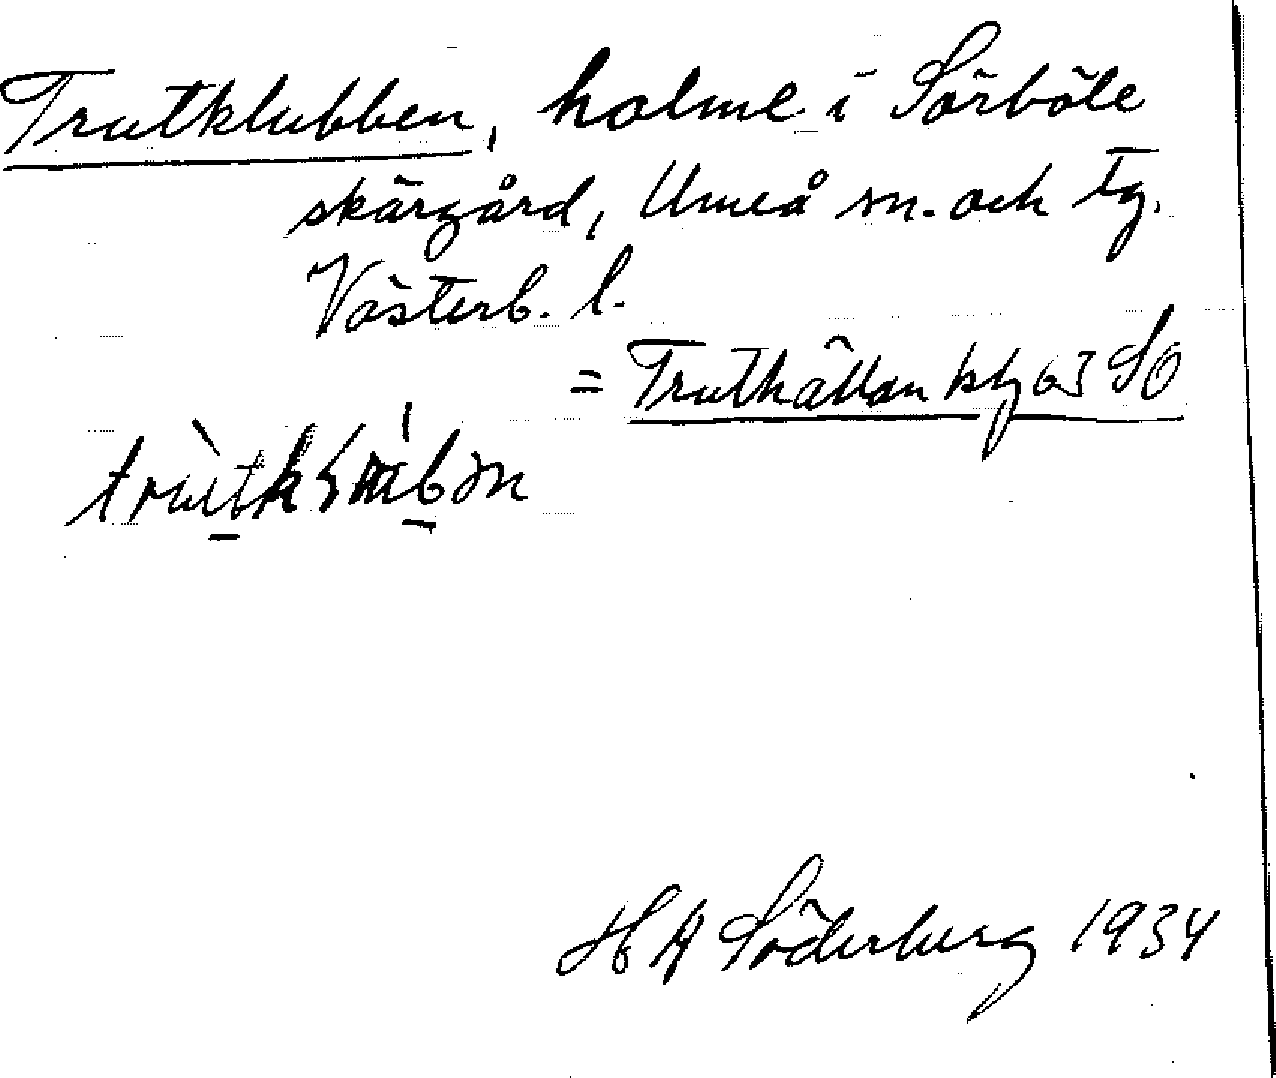 Trutklubben, holme i Sörböle
skärgård, Umeå sn. och tg.
Västerb. l.
= Truthällan kbl 63 SO
H A Söderberg 1934